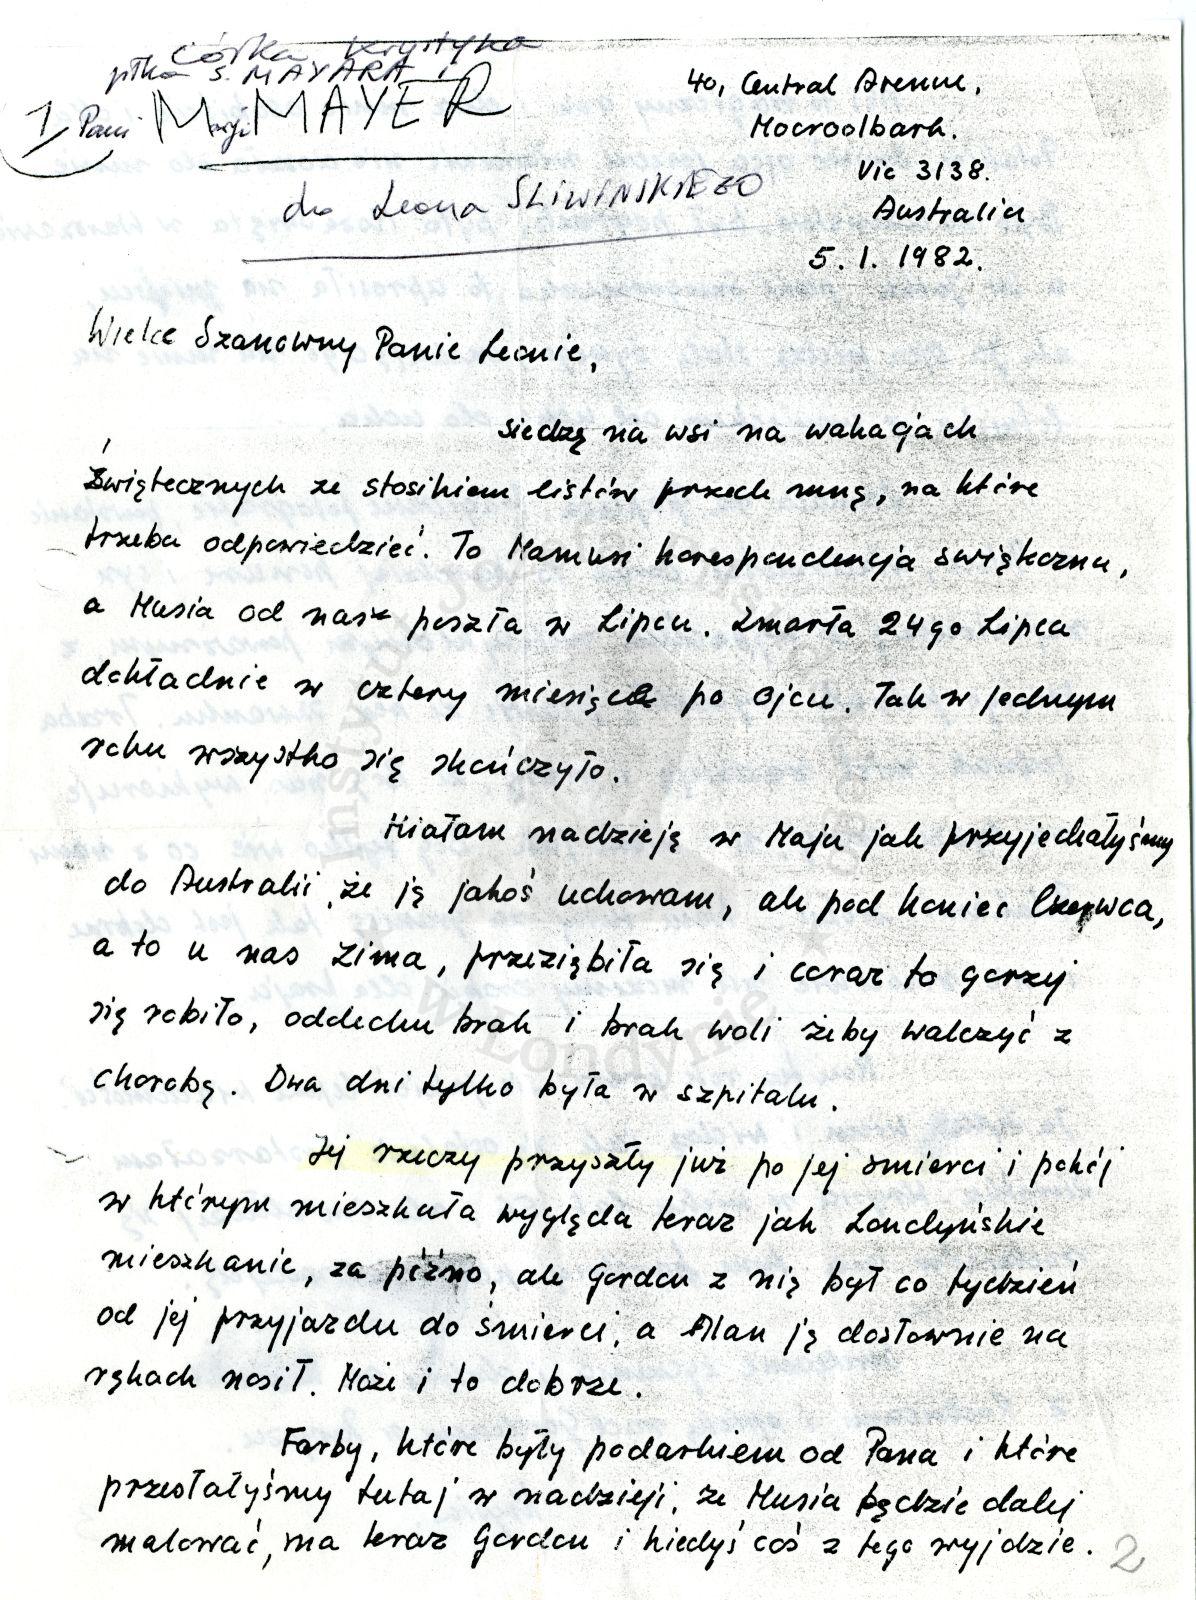 córka Krystyna
płka S. MAYARA i
1/ Pani Maryi MAYER
do Leona ŚLIWIŃSKIEGO
40, Central Avenue,
Mocroolbark.
Vic 3138.
Australia
5. 1. 1982.
Wielce Szanowny Panie Leonie,
siedzę na wsi na wakacjach
świątecznych ze stosikiem listów przede mną, na które
trzeba odpowiedzieć. To Mamusi korespondencja świąteczna,
a Musia od nas poszła w Lipcu. Zmarła 24go Lipca
dokładnie w cztery miesiące po Ojcu. Tak w jednym
roku wszystko się skończyło.
Miałam nadzieją w Maju jak przyjechałyśmy
do Australii, że ją jakoś uchowam, ale pod koniec Czerwca,
a to u nas zima, przeziębiła się i coraz to gorzej
się robiło, oddechu brak i brak woli żeby walczyć z
chorobą. Dwa dni tylko była w szpitalu.
Jej rzeczy przyszły już po jej śmierci i pokój
w którym mieszkała wygląda teraz jak Londyńskie
mieszkanie, za późno, ale Gordon z nią był co tydzień
od jej przyjazdu do śmierci, a Alan ją dosłownie na
rękach nosił. Może i to dobrze.
Farby, które były podarkiem od Pana i które
przesłałyśmy tutaj w nadzieji, że Musia będzie dalej
malować, ma teraz Gordon i kiedyś coś z tego wyjdzie.
2
w Londynie